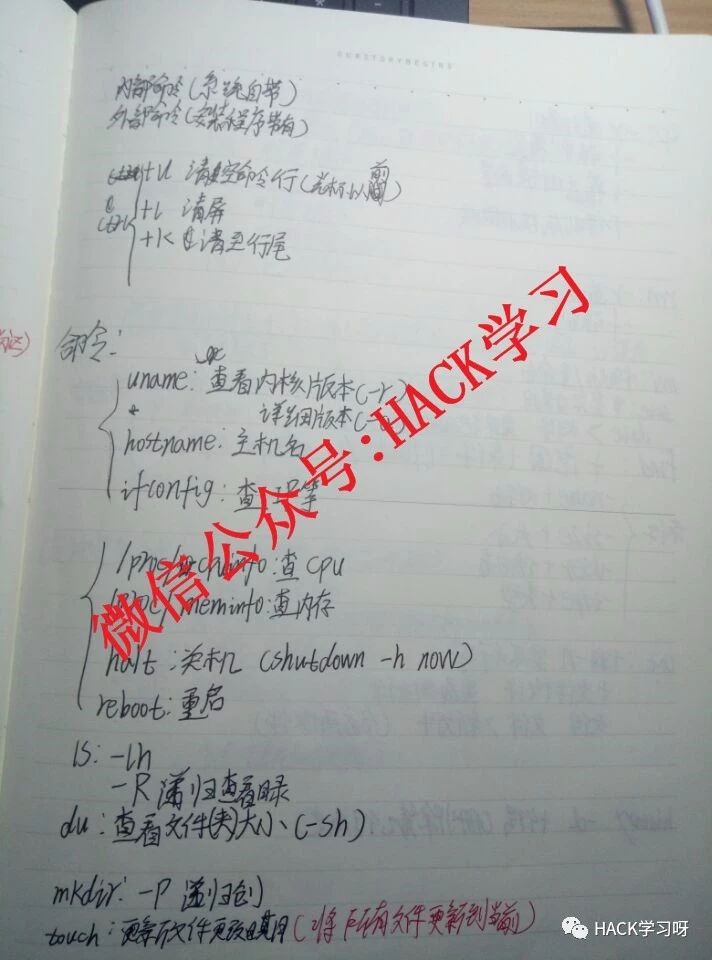 OURSTORYBEGINS
内部命令(系统自带)
外部命令(安装程序带有)
+U 清空命令行(光标以前)
Ctrl +L 清屏
+K 清至行尾
命令:
uname: 查看内核版本(-r)
详细版本
hostname: 主机名
ifconfig: 查
info: 查 cpu
meminfo: 查内存
halt: 关机 (shutdown -h now)
reboot: 重启
ls: -lh
-R 递归查看目录
du: 查看文件(夹)大小 (-sh)
mkdir: -P 递归创
touch: 更新文件更改日期 (将所有文件更新到当前)
微信公众号:HACK学习
HACK学习呀